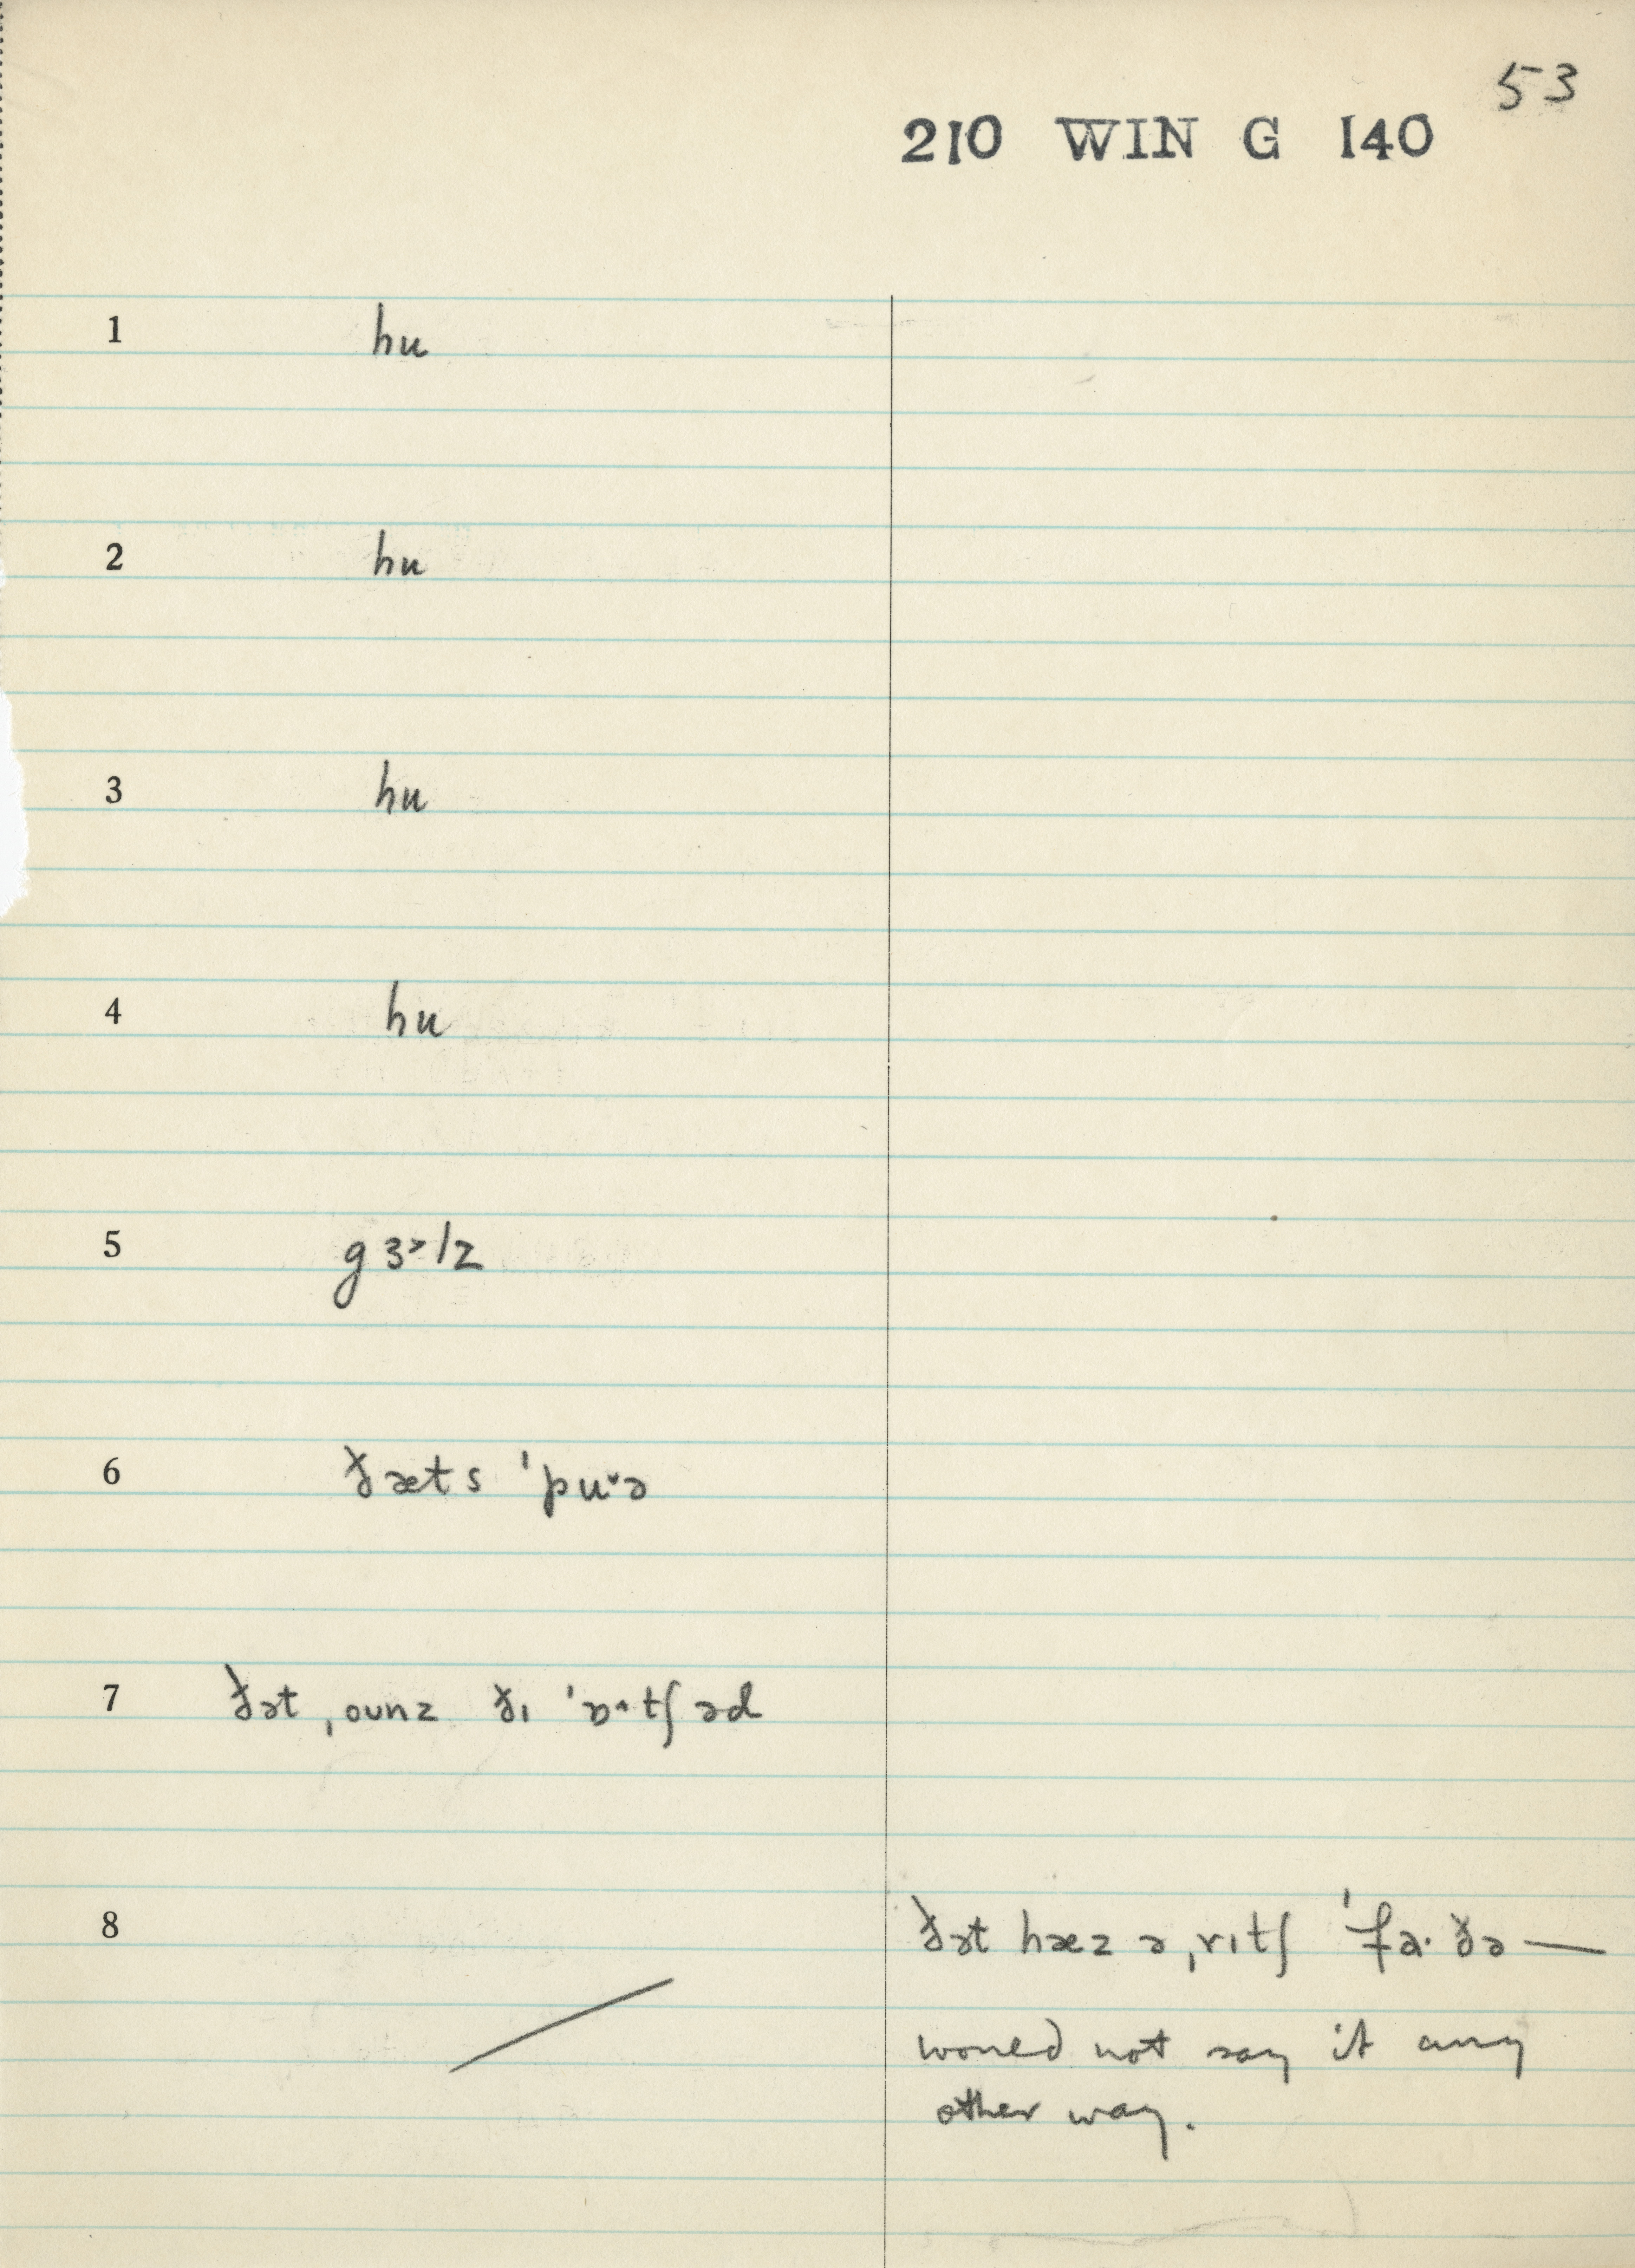 53
210 WIN G 140
1 hu
2 hu
3 hu
4 hu
5 gɜ˃lz
6 ðæts ˈpu˅ə
7 ðət ˌounz ðɪ ˈɒ˄tʃəd
8 ðət hæz ə ˌrɪtʃ ˈfa·ðə —
would not say it any
other way.